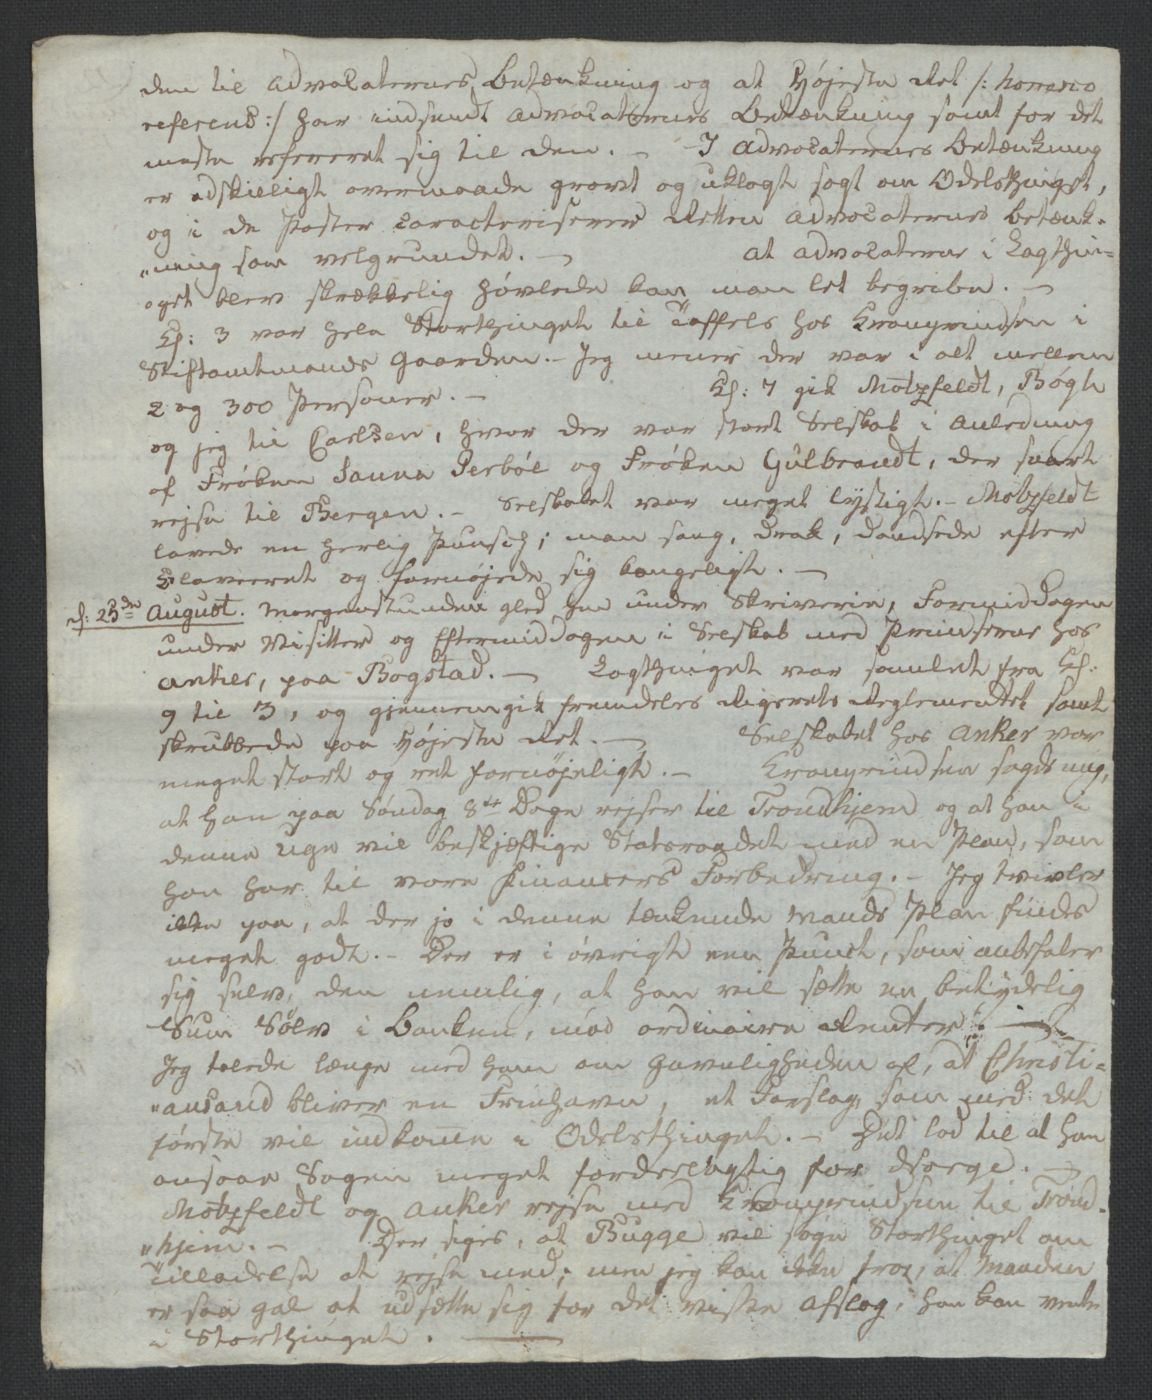 den til Advocaternes Betænkning og at Højeste Ret /: horresco
referens :/ har indsendt Advocaternes Betænkning samt for det
meste refereret sig til den. — I Advocaternes Betænkning
er adskilligt overmaade grovt og uklogt sagt om Odelsthinget,
og i de Poster caracteriserer Retten Advocaternes Betænk-
"ning som velgrundet. — At Advocaterne i Lagthin-
"get blev skrækkelig høvlede kan man let begribe. —
Kl: 3 var hele Storthinget til Taffels hos Kronprindsen i
Stiftamtmands Gaarden. - Jeg mener der var i alt mellem
2 og 300 Personer. — Kl: 7 gik Motzfeldt, Bøgh
og jeg til Carlsen, hvor der var stort Selskab i Anledning
af Frøken Janna Perbøl og Frøken Gülbrandt, der snart
rejse til Bergen. — Selskabet var meget lystigt. - Motzfeldt
lavede en herlig Punsch; man sang, drak, dandsede efter
Claveret og fornøjede sig kongeligt. —
d: 23de August. Morgenstunden gled hen under Skriverie, Formiddagen
under Visitter og Eftermiddagen i Selskab med Prindserne hos
Anker, paa Bogstad. — Lagthinget var samlet fra Kl:
9 til 3, og gjennemgik fremdeles Rigsrets Reglementet samt
skrubbede paa Højeste Ret. — Selskabet hos Anker var
meget stort og ret fornøjeligt. — Kronprindsen sagde mig,
at han paa Søndag 8te Dage rejser til Trondhjem og at han i
denne Uge vil beskjæftige Statsraadet med en Plan, som
han har til vore Financers Forbedring. - Jeg tvivler
ikke paa, at der jo i denne tænkende Mands Plan findes
meget godt. - Der er i øvrigt een Punct, som anbefaler
sig selv, den nemlig, at han vil sætte en betydelig
Sum Sølv i Banken, mod ordinaire Renter. —
Jeg talede længe med ham om Gavnligheden af, at Christi-
"ansand bliver en Friehavn, et Forslag, som med det
første vil indkomme i Odelsthinget. — Det lod til at han
ansaae Sagen meget fordeelagtig for Norge. —
Motzfeldt og Anker rejse med Kronprindsen til Trond-
"hjem. — Der siges, at Bugge vil søge Storthinget om
Tilladelse at rejse med; men jeg kan ikke troe, at Manden
er saa gal at udsætte sig for det visse Afslag, han kan vente
i Storthinget. —